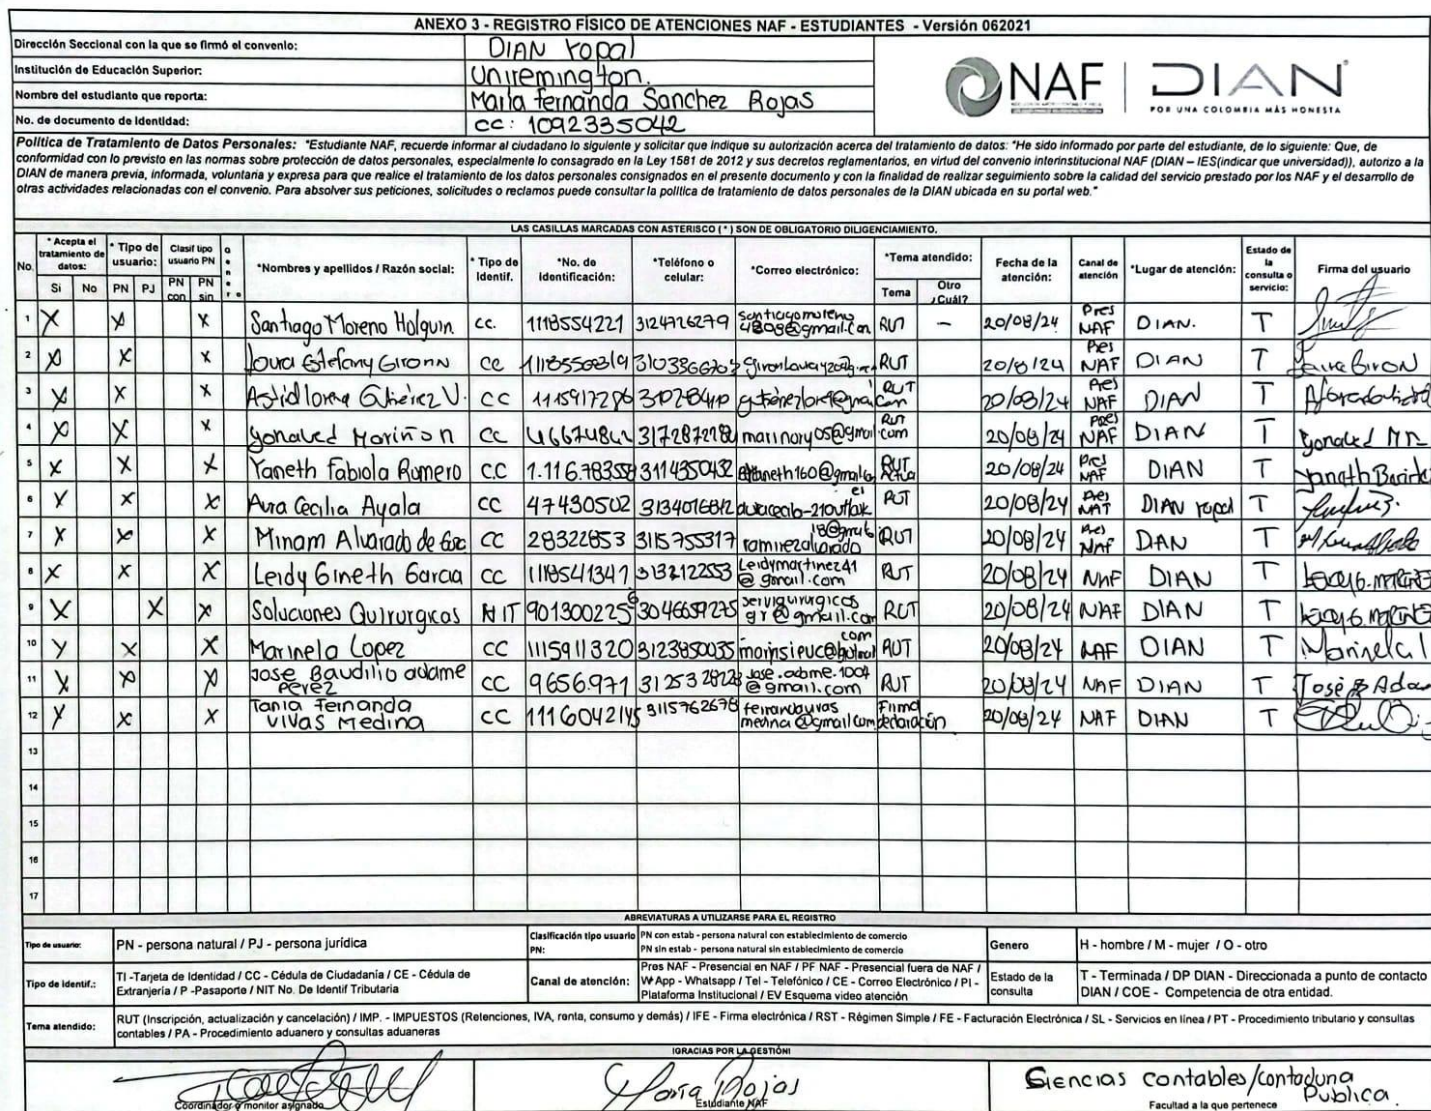 ANEXO 3 - REGISTRO FÍSICO DE ATENCIONES NAF - ESTUDIANTES - Versión 062021
Dirección Seccional con la que se firmó el convenio: DIAN Yopal
Institución de Educación Superior: Uniremington.
Nombre del estudiante que reporta: Maria fernanda Sanchez Rojas
No. de documento de Identidad: cc: 1092335042
NAF DIAN
POR UNA COLOMBIA MÁS HONESTA
Política de Tratamiento de Datos Personales: "Estudiante NAF, recuerde informar al ciudadano lo siguiente y solicitar que indique su autorización acerca del tratamiento de datos: "He sido informado por parte del estudiante, de lo siguiente: Que, de
conformidad con lo previsto en las normas sobre protección de datos personales, especialmente lo consagrado en la Ley 1581 de 2012 y sus decretos reglamentarios, en virtud del convenio interinstitucional NAF (DIAN – IES(indicar que universidad)), autorizo a la
DIAN de manera previa, informada, voluntaria y expresa para que realice el tratamiento de los datos personales consignados en el presente documento y con la finalidad de realizar seguimiento sobre la calidad del servicio prestado por los NAF y el desarrollo de
otras actividades relacionadas con el convenio. Para absolver sus peticiones, solicitudes o reclamos puede consultar la política de tratamiento de datos personales de la DIAN ubicada en su portal web."
LAS CASILLAS MARCADAS CON ASTERISCO ( * ) SON DE OBLIGATORIO DILIGENCIAMIENTO.
No. * Acepta el tratamiento de datos: Si No * Tipo de usuario: PN PJ Clasif tipo usuario PN PN con PN sin Genero *Nombres y apellidos / Razón social: * Tipo de Identif. *No. de Identificación: *Teléfono o celular: *Correo electrónico: *Tema atendido: Tema Otro ¿Cuál? Fecha de la atención: Canal de atención *Lugar de atención: Estado de la consulta o servicio: Firma del usuario
1 X X X Santiago Moreno Holguin cc. 1118554221 3124726279 RUT – 20/08/24 Pres NAF DIAN. T
2 X X X cc RUT 20/8/24 Pres NAF DIAN T
3 X X X CC RUT 20/08/24 Pres NAF DIAN T
4 X X X CC RUT 20/08/24 Pres NAF DIAN T
5 X X X Yaneth Fabiola Romero CC 1.116.783558 3114350432 RUT 20/08/24 Pres NAF DIAN T
6 X X X Aura Cecilia Ayala CC 47430502 RUT 20/08/24 Pres NAF DIAN Yopal T
7 X X X Miriam Alvarado de CC 28322853 3115755317 RUT 20/08/24 Pres NAF DIAN T
8 X X X Leidy Gineth Garcia CC 1118541347 3132122553 Leidymartinez41 @gmail.com RUT 20/08/24 NAF DIAN T
9 X X X Soluciones Quirurgicas NIT 901300225 3046659275 RUT 20/08/24 NAF DIAN T
10 X X X Marinela Lopez CC 1115911320 3123850035 RUT 20/08/24 NAF DIAN T
11 X X X Jose Baudilio adame Perez CC 9656.971 RUT 20/08/24 NAF DIAN T José B Ada
12 X X X Tania fernanda vivas Medina CC 1116042145 3115762678 Firma declaración 20/08/24 NAF DIAN T
13
14
15
16
17
ABREVIATURAS A UTILIZARSE PARA EL REGISTRO
Tipo de usuario: PN - persona natural / PJ - persona jurídica
Clasificación tipo usuario PN: PN con estab - persona natural con establecimiento de comercio
PN sin estab - persona natural sin establecimiento de comercio
Genero H - hombre / M - mujer / O - otro
Tipo de Identif.: TI -Tarjeta de Identidad / CC - Cédula de Ciudadanía / CE - Cédula de
Extranjería / P -Pasaporte / NIT No. De Identif Tributaria
Canal de atención: Pres NAF - Presencial en NAF / PF NAF - Presencial fuera de NAF /
W App - Whatsapp / Tel - Telefónico / CE - Correo Electrónico / PI -
Plataforma Institucional / EV Esquema video atención
Estado de la consulta T - Terminada / DP DIAN - Direccionada a punto de contacto
DIAN / COE - Competencia de otra entidad.
Tema atendido: RUT (Inscripción, actualización y cancelación) / IMP. - IMPUESTOS (Retenciones, IVA, renta, consumo y demás) / IFE - Firma electrónica / RST - Régimen Simple / FE - Facturación Electrónica / SL - Servicios en línea / PT - Procedimiento tributario y consultas
contables / PA - Procedimiento aduanero y consultas aduaneras
¡GRACIAS POR LA GESTIÓN!
Coordinador o monitor asignado
María Rojas
Estudiante NAF
Ciencias contables/contaduria
Publica.
Facultad a la que pertenece